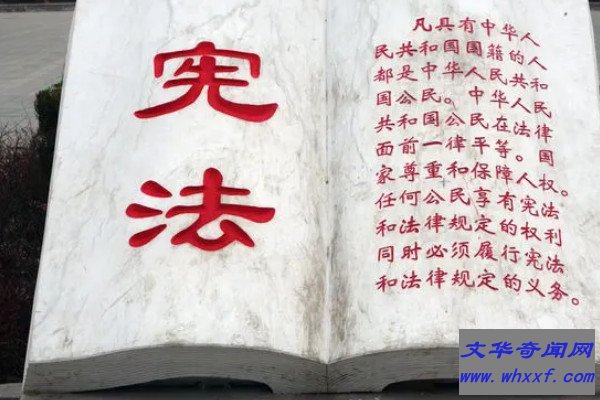 宪
法
凡具有中华人
民共和国国籍的人
都是中华人民共和
国公民。中华人民
共和国公民在法律
面前一律平等。国
家尊重和保障人权。
任何公民享有宪法
和法律规定的权利
同时必须履行宪法
和法律规定的义务。
文华奇闻网
www.whxxf.com